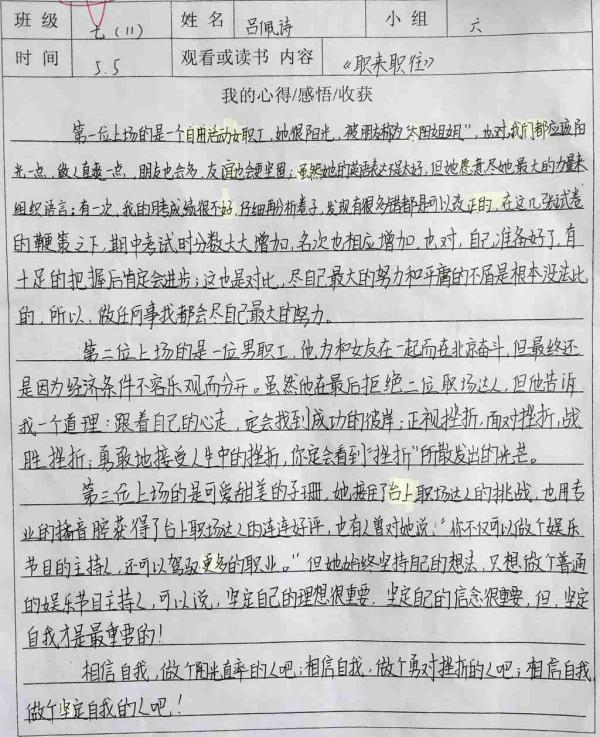 班级 七(11) 姓名 吕佩诗 小组 六
时间 5.5 观看或读书内容 《职来职往》
我的心得/感悟/收获
第一位上场的是一个自由活动女职工,她很阳光,被朋友称为"太阳姐姐",也对,我们都应该阳
光一点,做人直率一点,朋友也会多,友谊也会更坚固;虽然她的英语表达不太好,但她愿意尽她最大的力量来
组织语言;有一次,我的月考成绩很不好,仔细再分析卷子,发现有很多错都是可以改正的,在这几张试卷
的鞭策之下,期中考试时分数大大增加,名次也相应增加,也对,自己准备好了,有
十足的把握后肯定会进步;这也是对比,尽自己最大的努力和平庸的不屑是根本没法比
的,所以,做任何事我都会尽自己最大的努力。
第二位上场的是一位男职工,他为和女友在一起而在北京奋斗,但最终还
是因为经济条件不容乐观而分开。虽然他在最后拒绝二位职场达人,但他告诉
我一个道理:跟着自己的心走,定会找到成功的彼岸;正视挫折,面对挫折,战
胜挫折;勇敢地接受人生中的挫折,你定会看到"挫折"所散发出的光芒。
第三位上场的是可爱甜美的子珊,她接任了台上职场达人的挑战,也用专
业的播音腔获得了台上职场达人的连连好评,也有人曾对她说:"你不仅可以做个娱乐
节目的主持人,还可以驾驭更多的职业。"但她始终坚持自己的想法,只想做个普通
的娱乐节目主持人,可以说,坚定自己的理想很重要,坚定自己的信念很重要,但,坚定
自我才是最重要的!
相信自我,做个阳光直率的人吧;相信自我,做个勇对挫折的人吧;相信自我,
做个坚定自我的人吧!